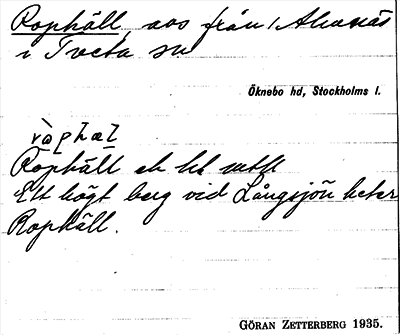 Rophäll, avs från Alvnäs
i Tveta sn
Öknebo hd, Stockholms l.
Rophäll
Ett högt berg vid Långsjön heter
Rophäll.
GÖRAN ZETTERBERG 1935.